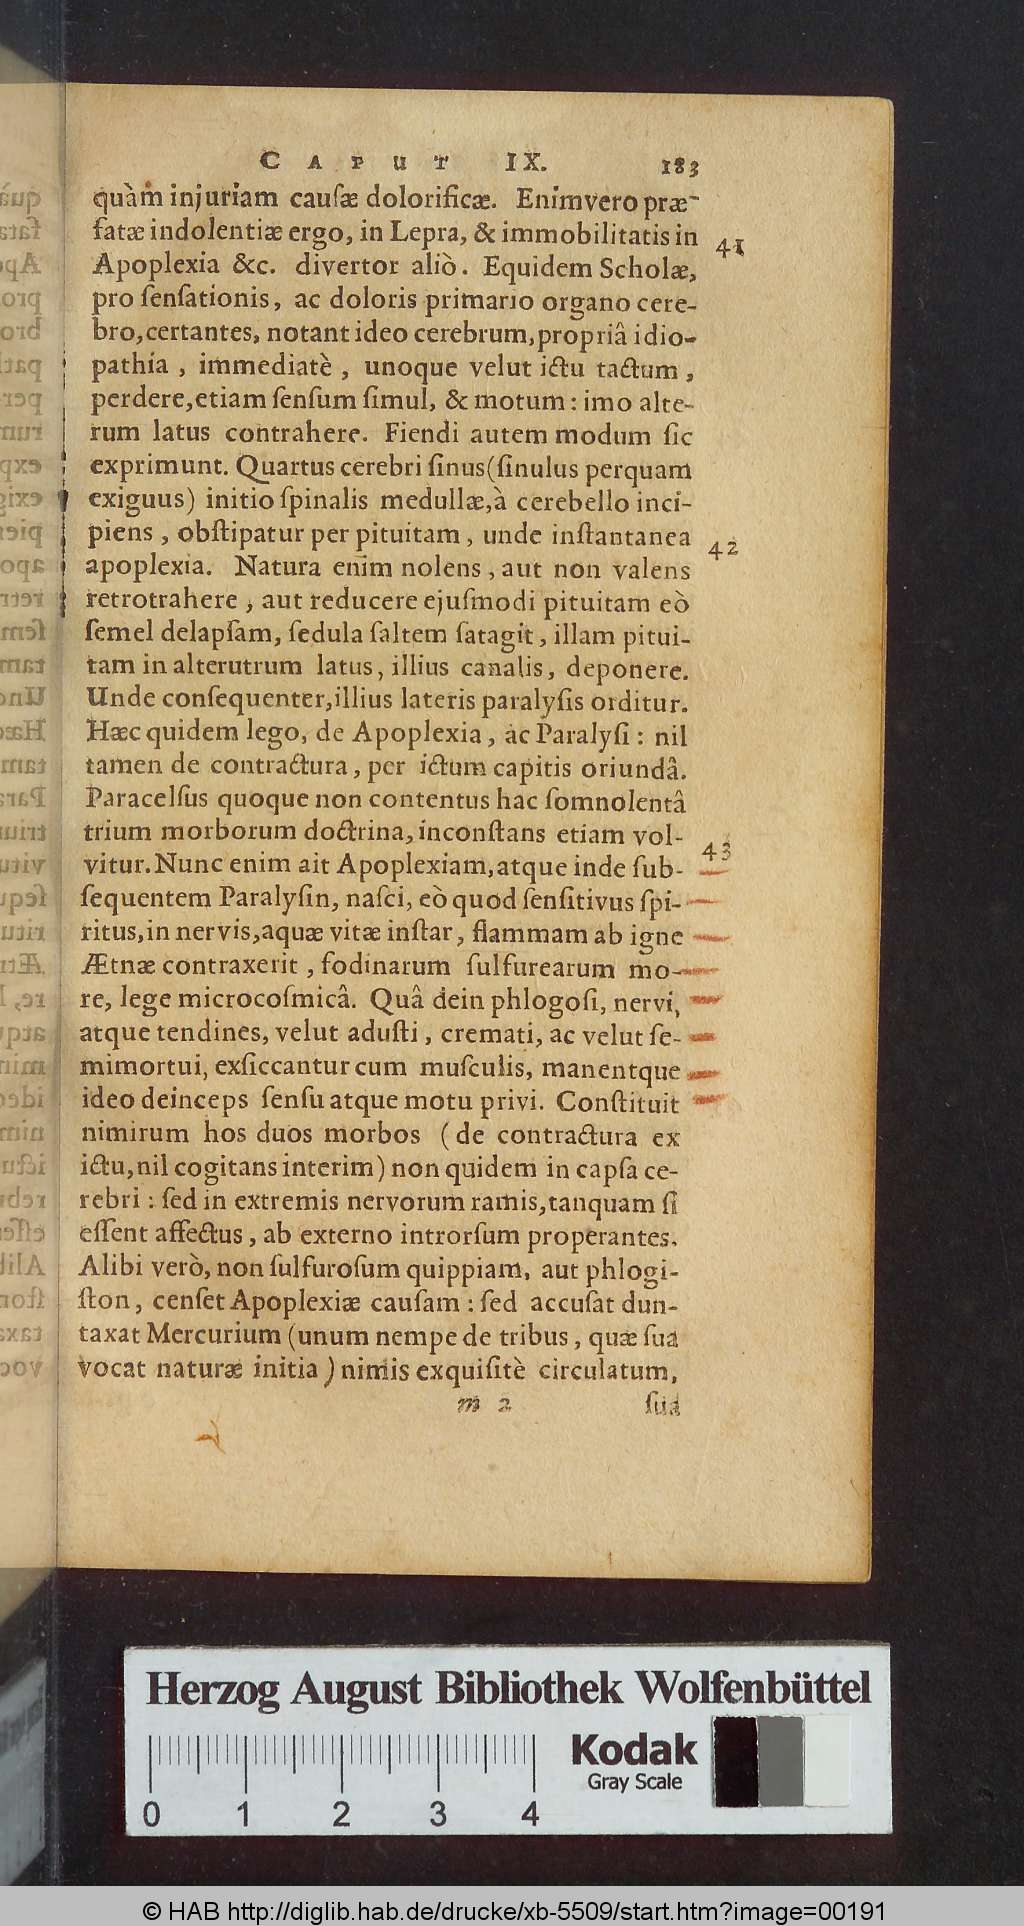 CAPUT IX. 183
quàm injuriam cauſæ dolorificæ. Enimvero præ-
fatæ indolentiæ ergo, in Lepra, & immobilitatis in 41
Apoplexia &c. divertor aliò. Equidem Scholæ,
pro ſenſationis, ac doloris primario organo cere-
bro, certantes, notant ideo cerebrum, propriâ idio-
pathia, immediatè, unoque velut ictu tactum,
perdere, etiam ſenſum ſimul, & motum: imo alte-
rum latus contrahere. Fiendi autem modum ſic
exprimunt. Quartus cerebri ſinus (ſinulus perquam
exiguus) initio ſpinalis medullæ, à cerebello inci-
piens, obſtipatur per pituitam, unde inſtantanea 42
apoplexia. Natura enim nolens, aut non valens
retrotrahere, aut reducere ejuſmodi pituitam eò
ſemel delapſam, ſedula ſaltem ſatagit, illam pitui-
tam in alterutrum latus, illius canalis, deponere.
Unde conſequenter, illius lateris paralyſis orditur.
Hæc quidem lego, de Apoplexia, ac Paralyſi: nil
tamen de contractura, per ictum capitis oriundâ.
Paracelſus quoque non contentus hac ſomnolentâ
trium morborum doctrina, inconſtans etiam vol-
vitur. Nunc enim ait Apoplexiam, atque inde ſub- 43
ſequentem Paralyſin, naſci, eò quod ſenſitivus ſpi-
ritus, in nervis, aquæ vitæ inſtar, flammam ab igne
Ætnæ contraxerit, fodinarum ſulfurearum mo-
re, lege microcoſmicâ. Quâ dein phlogoſi, nervi,
atque tendines, velut aduſti, cremati, ac velut ſe-
mimortui, exſiccantur cum muſculis, manentque
ideo deinceps ſenſu atque motu privi. Conſtituit
nimirum hos duos morbos (de contractura ex
ictu, nil cogitans interim) non quidem in capſa ce-
rebri: ſed in extremis nervorum ramis, tanquam ſi
eſſent affectus, ab externo introrſum properantes.
Alibi verò, non ſulfuroſum quippiam, aut phlogi-
ſton, cenſet Apoplexiæ cauſam: ſed accuſat dun-
taxat Mercurium (unum nempe de tribus, quæ ſua
vocat naturæ initia) nimis exquiſitè circulatum,
m 2 ſua
Herzog August Bibliothek Wolfenbüttel
Kodak
Gray Scale
0 1 2 3 4
© HAB http://diglib.hab.de/drucke/xb-5509/start.htm?image=00191